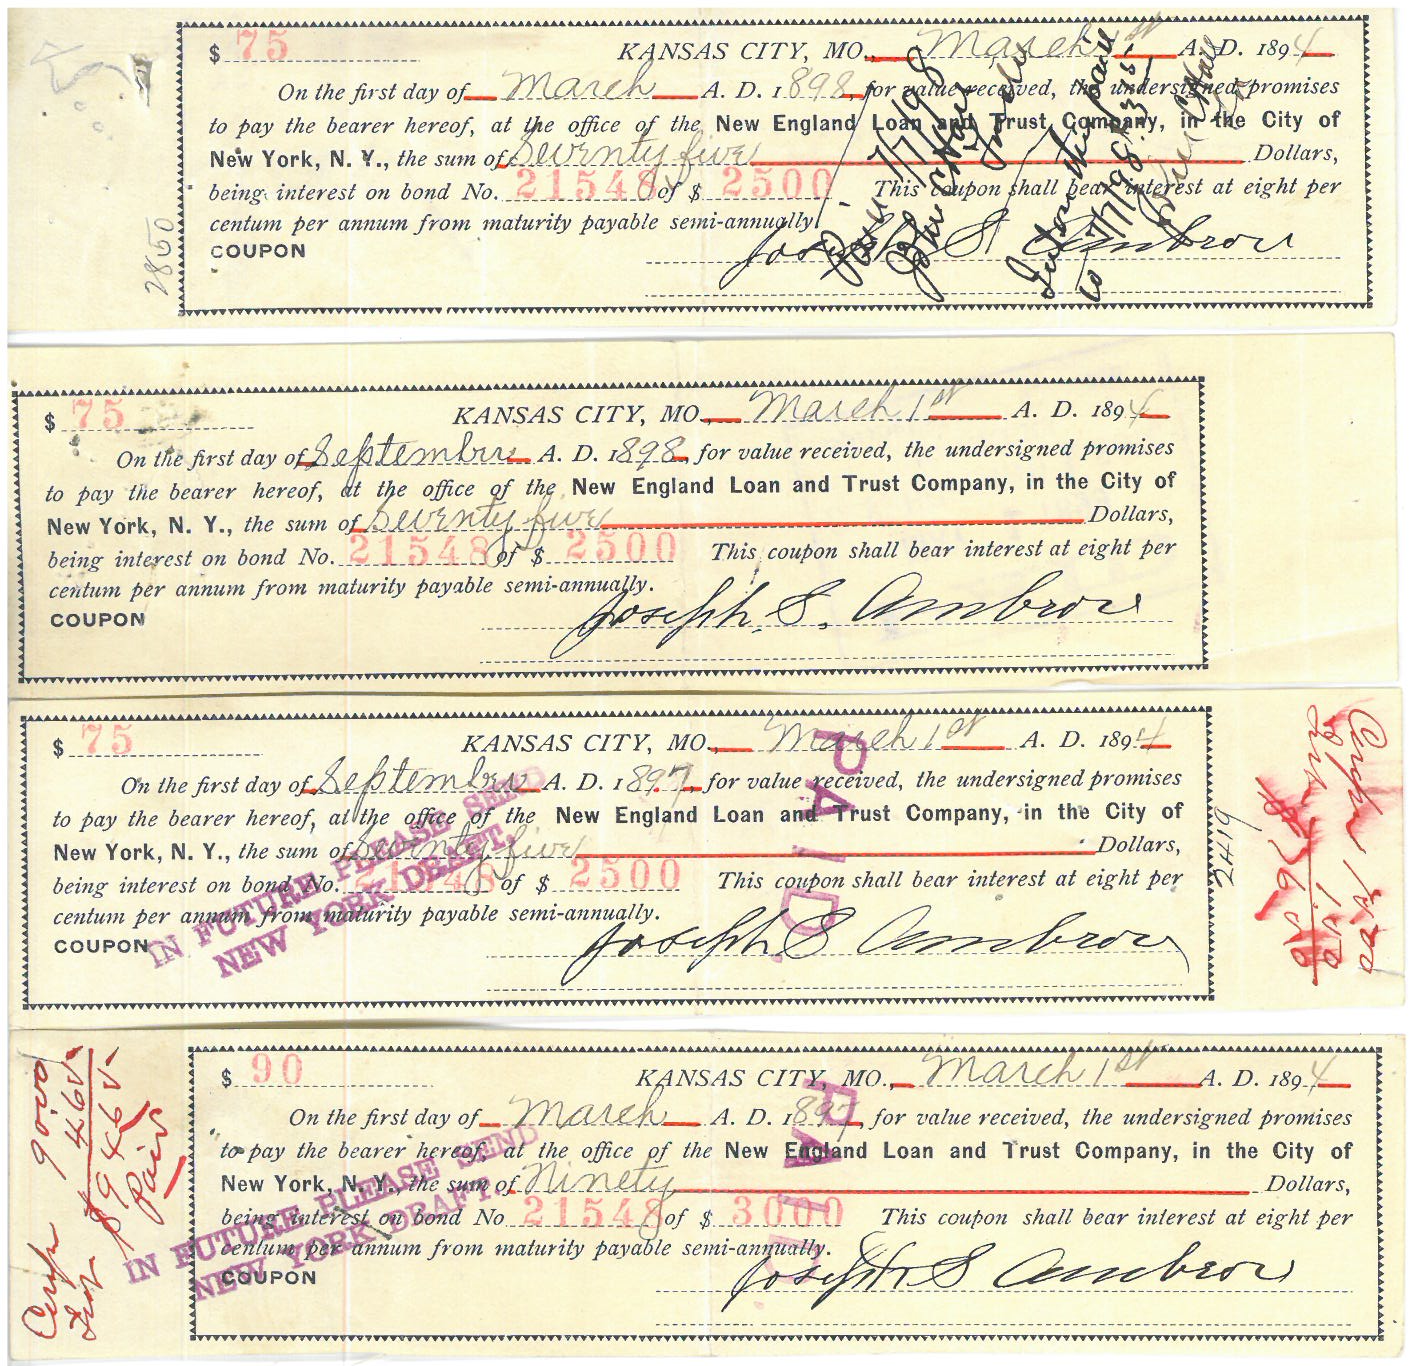 $ 75 KANSAS CITY, MO., March 1st A. D. 1894
On the first day of March A. D. 1898, for value received, the undersigned promises
to pay the bearer hereof, at the office of the New England Loan and Trust Company, in the City of
New York, N. Y., the sum of Seventy five Dollars,
being interest on bond No. 21548 of $ 2500 This coupon shall bear interest at eight per
centum per annum from maturity payable semi-annually.
COUPON Joseph S. Ambrose
$ 75 KANSAS CITY, MO., March 1st A. D. 1894
On the first day of September A. D. 1898, for value received, the undersigned promises
to pay the bearer hereof, at the office of the New England Loan and Trust Company, in the City of
New York, N. Y., the sum of Seventy five Dollars,
being interest on bond No. 21548 of $ 2500 This coupon shall bear interest at eight per
centum per annum from maturity payable semi-annually.
COUPON Joseph S. Ambrose
$ 75 KANSAS CITY, MO., March 1st A. D. 1894
On the first day of September A. D. 1897, for value received, the undersigned promises
to pay the bearer hereof, at the office of the New England Loan and Trust Company, in the City of
New York, N. Y., the sum of Seventy five Dollars,
being interest on bond No. 21548 of $ 2500 This coupon shall bear interest at eight per
centum per annum from maturity payable semi-annually.
COUPON Joseph S Ambrose
IN FUTURE PLEASE SEND
NEW YORK DRAFT.
PAID
2419
$ 90 KANSAS CITY, MO., March 1st A. D. 1894
On the first day of March A. D. 1897, for value received, the undersigned promises
to pay the bearer hereof, at the office of the New England Loan and Trust Company, in the City of
New York, N. Y., the sum of Ninety Dollars,
being interest on bond No 21548 of $ 3000 This coupon shall bear interest at eight per
centum per annum from maturity payable semi-annually.
COUPON Joseph S Ambrose
IN FUTURE PLEASE SEND
NEW YORK DRAFT.
PAID